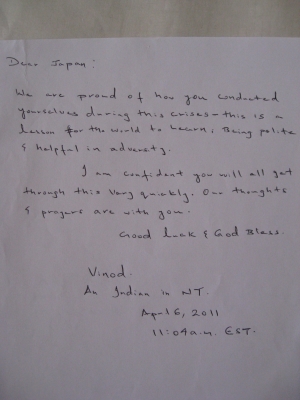 Dear Japan:
We are proud of how you conducted
yourselves during this crises - this is a
lesson for the world to learn, Being polite
& helpful in adversity.
I am confident you will all get
through this very quickly. Our thoughts
& prayers are with you.
Good luck & God Bless.
Vinod.
An Indian in NJ.
April 6, 2011
11:04 a.m. EST.